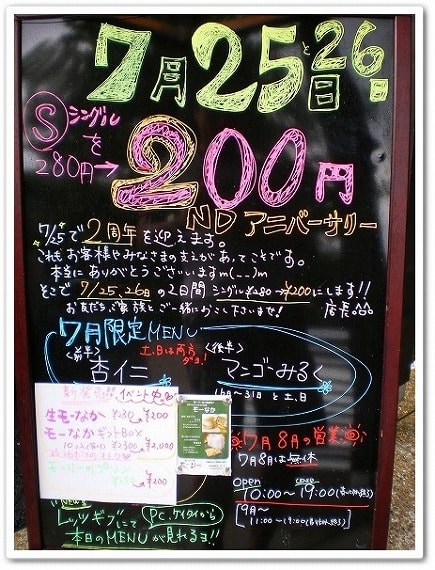 7月25日と26日
Ⓢシングルを
280円→200円
2ND アニバーサリー
7/25で2周年を迎えます。
これもお客様やみなさまの支えがあってことです。
本当にありがとうございますm(__)m
そこで7/25.26日の2日間 シングル¥280→¥200にします!!
お友だち、ご家族とご一緒にお越し下さいませ! 店長
7月限定MENU
土、日は両方ダヨ!
<前半> <後半>
杏仁 マンゴーみるく
16日〜31日と土、日
イベント
生モーなか ¥230→¥200
モーなかギフトBOX
¥2,300→¥2,000
¥200
モーなか
7月8月の営業
7月8月は無休
open close
10:00〜19:00
9月〜
11:00〜19:00
NEWS
レッツギブにて PC.ケイタイから
本日のMENUが見れるヨ!!